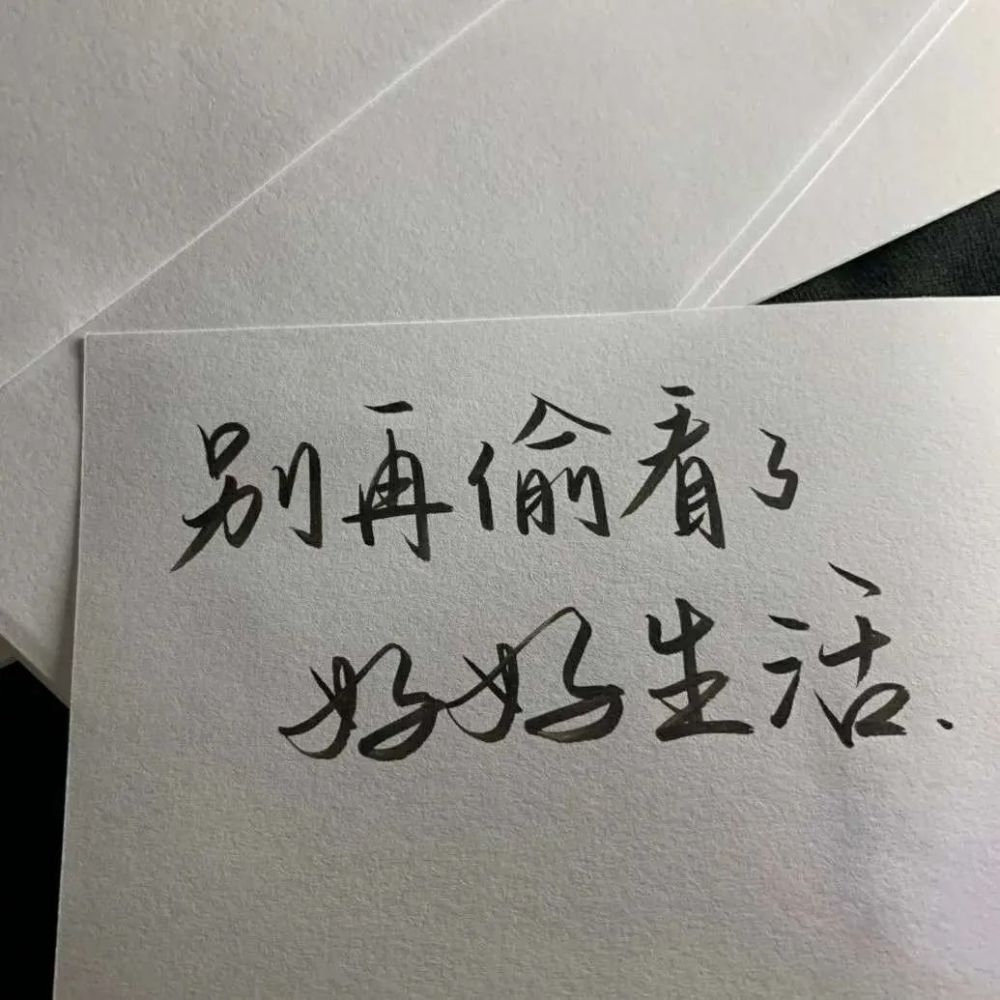 别再偷看了
好好生活.